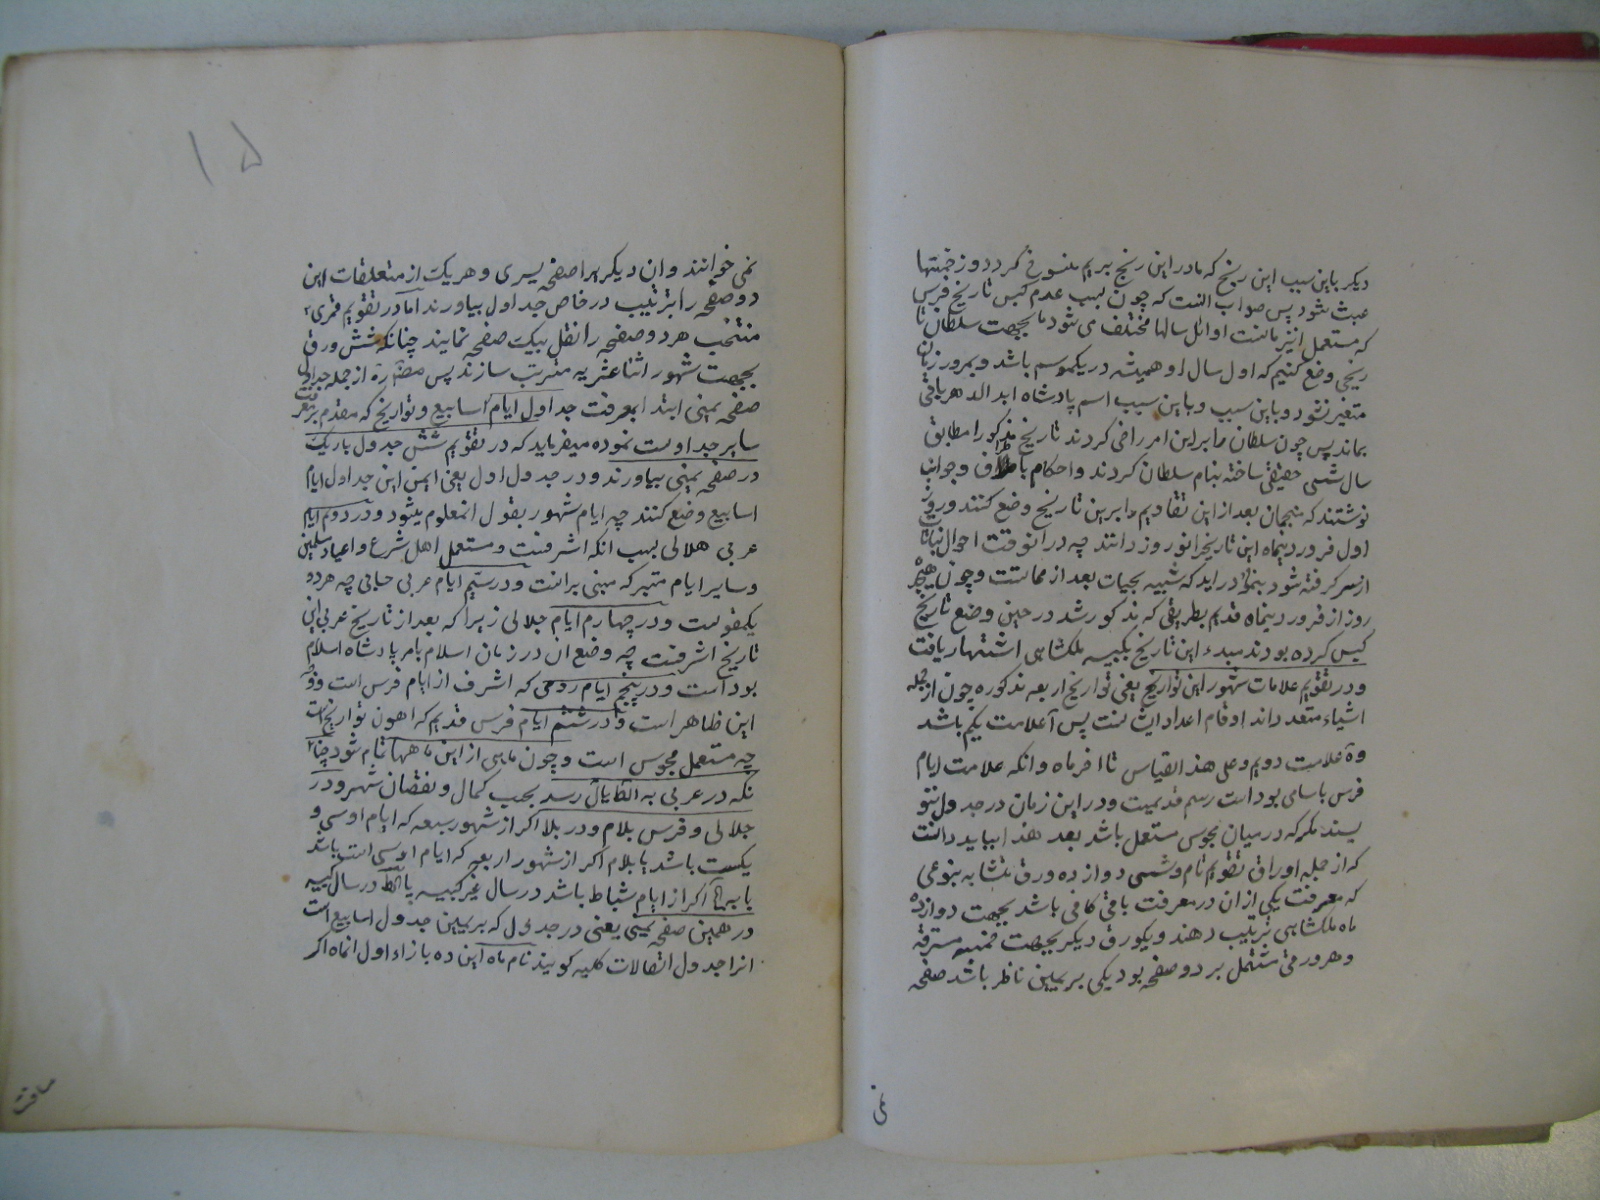 دیکر باین سبب این رنج که مادر این رنج بریم منسوخ کردد و زحمتها
عبث شود پس صواب انست که چون بسبب عدم کبس تاریخ فرس
که مستعمل اوائل سالها مختلف می شود ما بجهت سلطان تا
ریخی وضع کنیم که اول سال او همیشه در یکموسم باشد و بمرور زمان
متغیر نشود و باین سبب و باین سبب اسم پادشاه ابد الدهر باقی
بماند پس چون سلطان را برین امر راضی کردند تاریخ مذکور را مطابق
سال شمسی حقیقی ساخته بنام سلطان کردند و احکام باطراف و جوانب
نوشتند که منجمان بعد از این تقادیم را برین تاریخ وضع کنند و روز
اول فروردینماه این تاریخ را نوروز دانند چه در انوقت احوال نبات
از سر کرفته شود بنما دراید که شبیه بحیات بعد از مماتست و چون هیجده
روز از فروردینماه قدیم بطریقی که مذکور شد در حین وضع تاریخ
کبس کرده بودند مبدء این تاریخ بکبیسه ملکشاهی اشتهار یافت
و در تقویم علامات شهور این تواریخ یعنی تواریخ اربعه مذکوره چون از جمله
اشیاء متعدد اند ارقام اعداد ایشانست پس آ علامت یکم باشد
و ة علامت دویم و علی هذ القیاس تا اخر ماه و انکه علامت ایام
فرس باسامی بود است رسم قدیمیست و در این زمان در جدول ننو
یسند مکر که در میان مجوس مستعمل باشد بعد هذا بباید دانست
که از جمله اوراق تقویم تام و شمسی دوازده ورق متشابه بنوعی
که معرفت یکی از ان در معرفت باقی کافی باشد بجهت دوازده
ماه ملکشاهی ترتیب دهند و یکورق دیکر بجهت خمسه مسترقه
و هر ورقی مشتمل بر دو صفحه بود یکی بر یمین ناظر باشد صفحه
۱۵
نمی خوانند وان دیکر را صفحه یسری و هر یک از متعلقات این
دو صفحه را بترتیب در خاص جداول بیاورند اما در تقویم قمری
منتخب هر دو صفحه را نقل بیک صفحه نمایند چنانکه شش ورق
بجهت شهور اثنا عشریه مترتب سازند پس از جمله جداول
صفحه یمینی ابتدا بمعرفت جداول ایام اسابیع و تواریخ که مقدم بر معرفت
سایر جداولست نموده میفرماید که در تقویم شش جدول باریک
در صفحه یمینی بیاورند و در جدول اول یعنی ایمن این جداول ایام
اسابیع وضع کنند چه ایام شهور بقول انمعلوم میشود و در دوم ایام
عربی هلالی بسبب انکه اشرفست و مستعمل اهل شرع و اعیاد مسلمین
و سایر ایام متبرکه مبنی برانست و در سیم ایام عربی حسابی چه هر دو
یکمقولست و در چهارم ایام جلالی زیرا که بعد از تاریخ عربی این
تاریخ اشرفست چه وضع ان در زمان اسلام بامر پادشاه اسلام
بود است و در پنجم ایام رومی که اشرف از ایام فرس است و وجه
این ظاهر است و در ششم ایام فرس قدیم که اهون تواریخ است
چه مستعمل مجوس است و چون ماهی از این ماهها تمام شود چنا
نکه در عربی به کط یا ل رسد بحسب کمال و نقصان شهر و در
جلالی و فرس بلام و در بلا اکر از شهور سبعه که ایام او سی و
یکست باشد یا بلام اکر از شهور اربعه که ایام او سی است باشد
یا اکر از ایام شباط باشد در سال غیر کبیسه یا کط در سال کبیسه
در همین صفحه یمینی یعنی در جدول که بر یمین جدول اسابیع است
انرا جدول اتصالات کلیه کویند نام ماه این ده بازاء اول انماه اکر